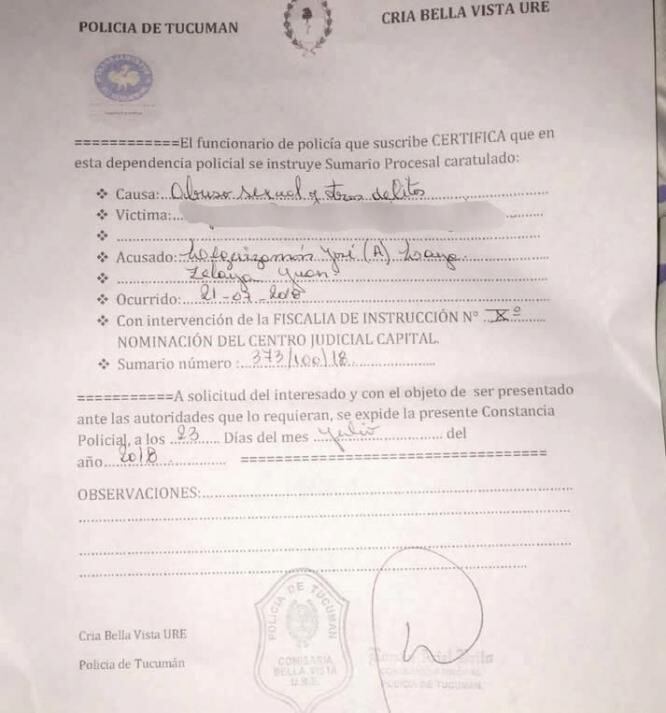 POLICIA DE TUCUMAN
CRIA BELLA VISTA URE
============El funcionario de policía que suscribe CERTIFICA que en
esta dependencia policial se instruye Sumario Procesal caratulado:
❖ Causa:..Abuso sexual y otros delitos
❖ Victima:...
❖
❖ Acusado: José (A)
❖ Zelaya Juan
❖ Ocurrido: 21-07-2018
❖ Con intervención de la FISCALIA DE INSTRUCCIÓN N° X°
NOMINACIÓN DEL CENTRO JUDICIAL CAPITAL.
❖ Sumario número :..373/100/18
===========A solicitud del interesado y con el objeto de ser presentado
ante las autoridades que lo requieran, se expide la presente Constancia
Policial, a los ..23..... Días del mes Julio ........ del
año..2018 ................ ==================================
OBSERVACIONES:
POLICIA DE TUCUMAN
COMISARIA
BELLA VISTA
U.R.E.
Cria Bella Vista URE
Policia de Tucumán
POLICIA DE TUCUMAN